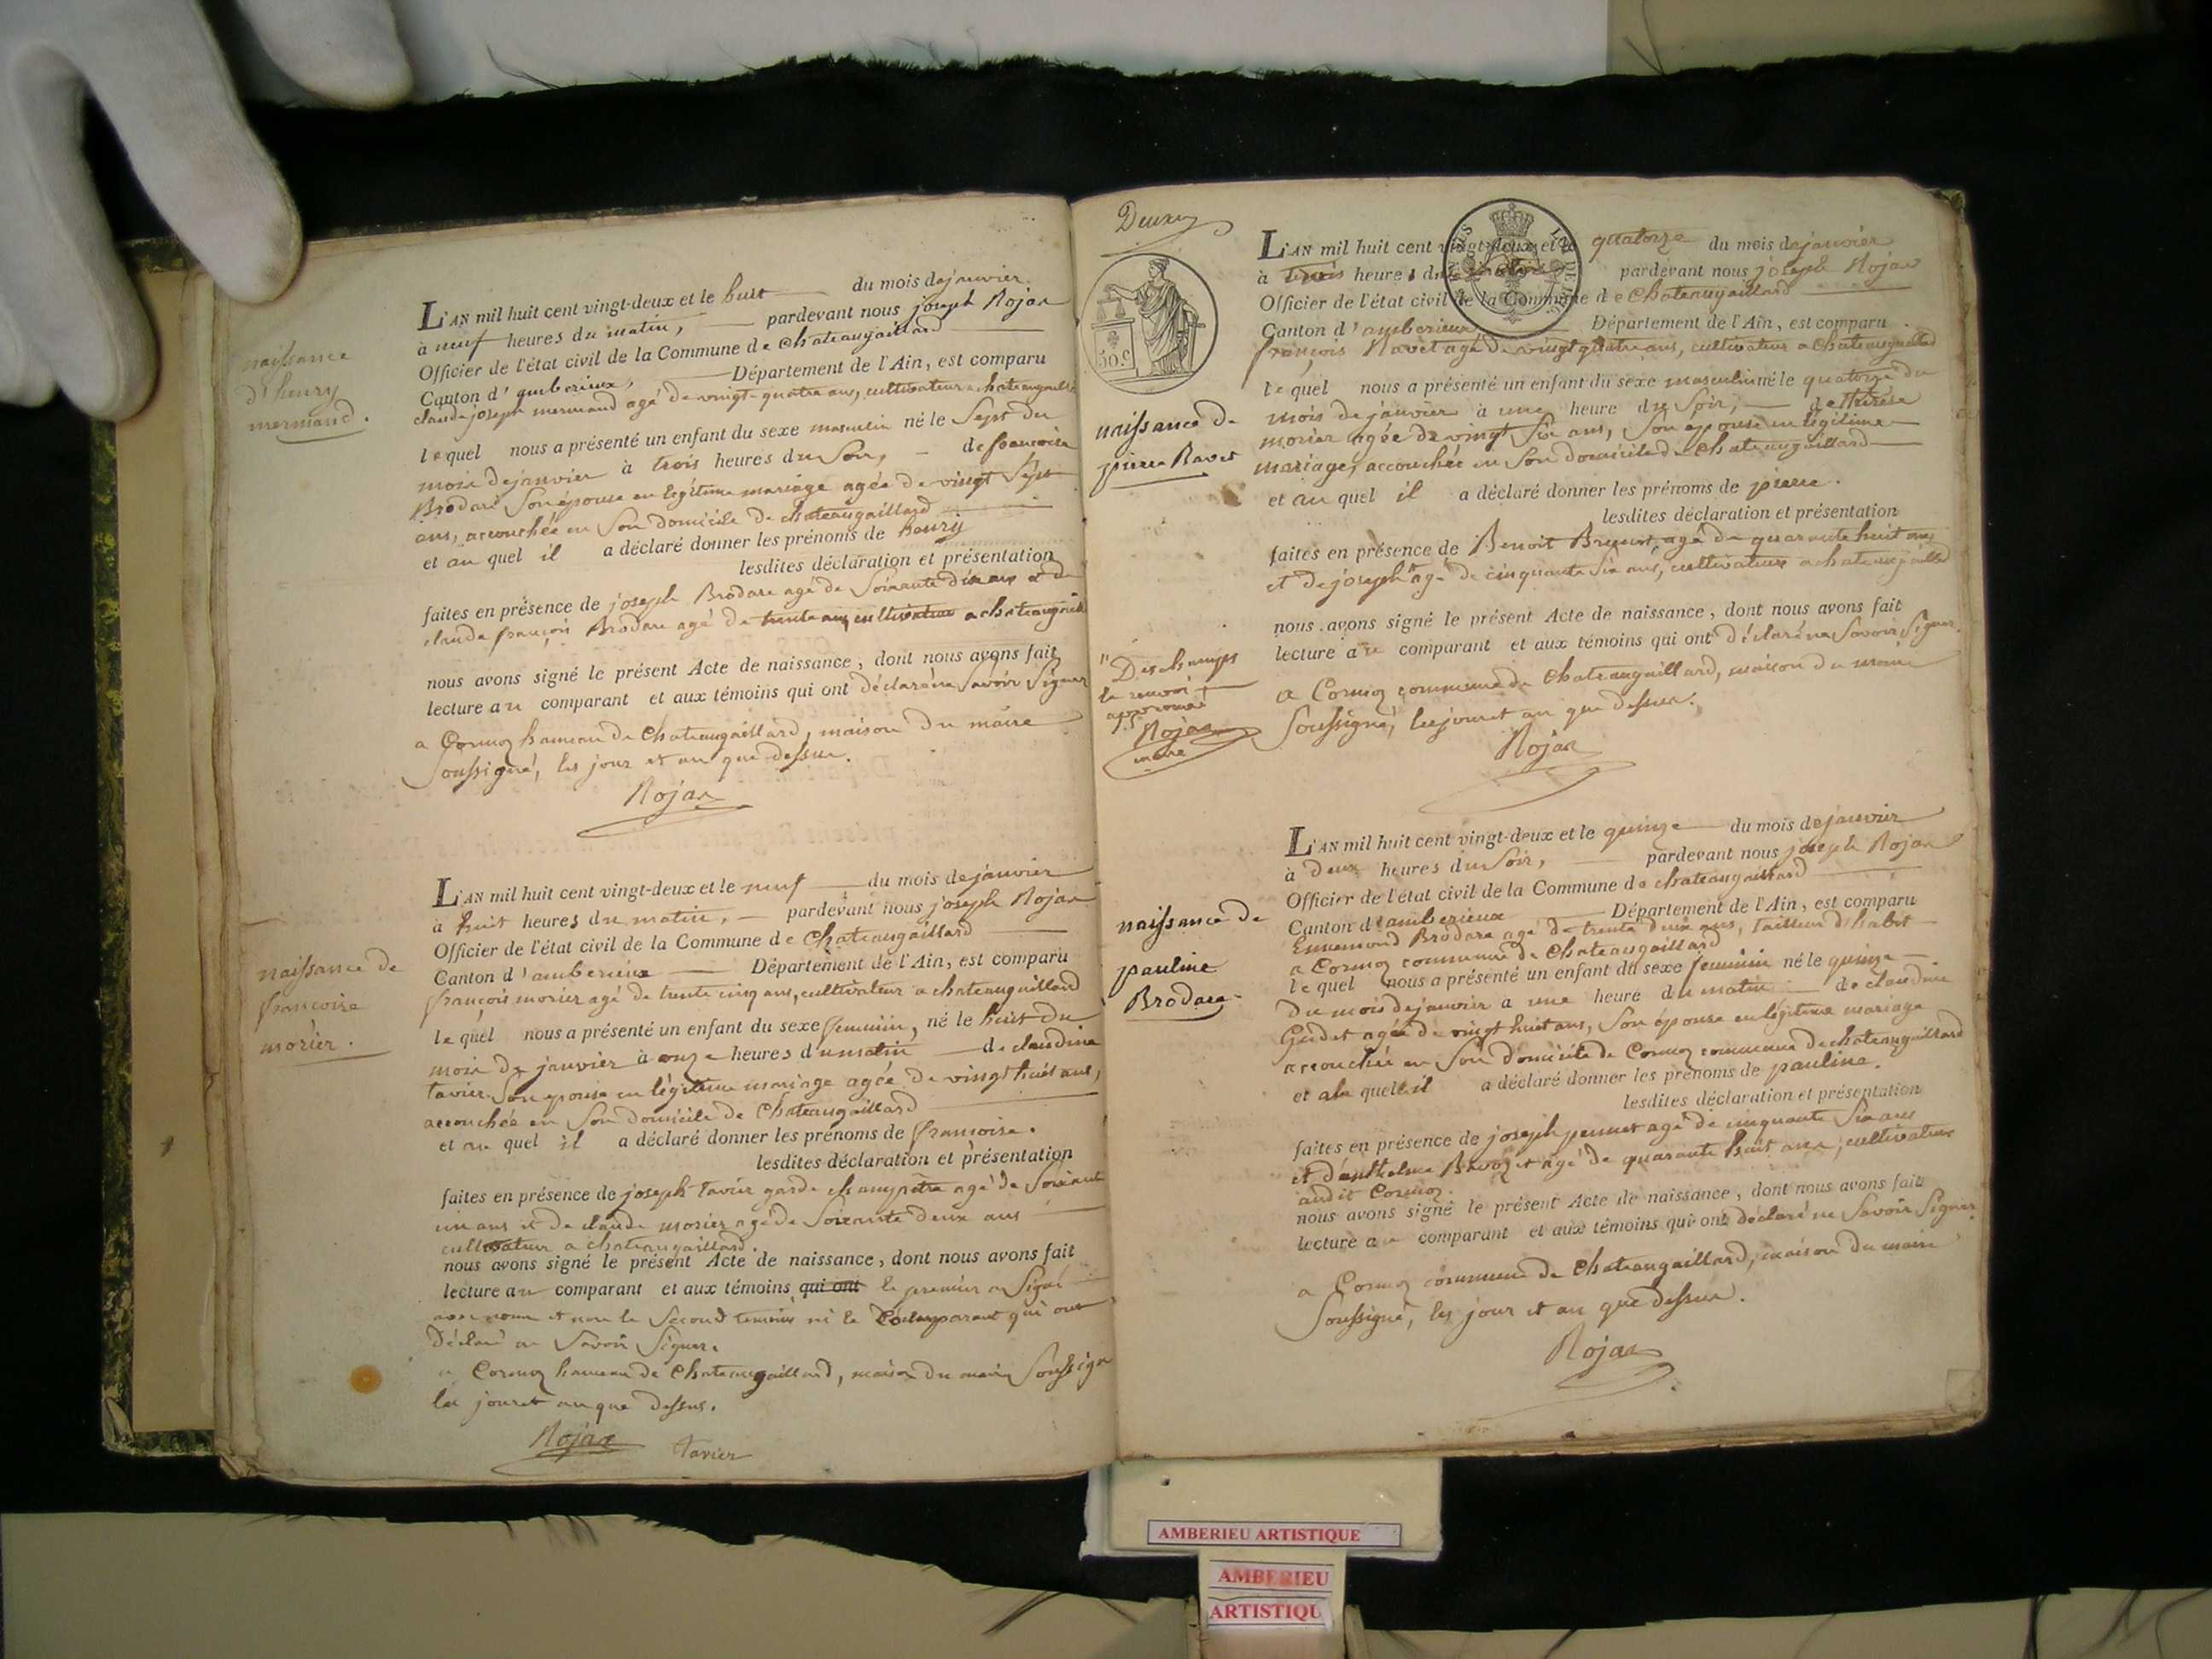 naissance
d'henry
mermand.
L'AN mil huit cent vingt-deux et le huit du mois de janvier
à neuf heures du matin, pardevant nous joseph Rojat
Officier de l'état civil de la Commune de chateaugaillard
Canton d'amberieux, Département de l'Ain, est comparu
claude joseph mermand agé de vingt-quatre ans, cultivateur a chateaugaillard
lequel nous a présenté un enfant du sexe masculin né le Sept du
mois de janvier à trois heures du Soir, de francoise
Brodare Son épouse en légitime mariage agée de vingt Sept
ans, accouchée en Son domicile de chateaugaillard
et au quel il a déclaré donner les prénoms de henry
lesdites déclaration et présentation
faites en présence de joseph Brodare agé de Soixante dix ans et de
claude françois Brodare agé de trente ans cultivateur a chateaugaillard
nous avons signé le présent Acte de naissance, dont nous avons fait
lecture au comparant et aux témoins qui ont déclaré ne Savoir Signer
a Cormoz hameau de Chateaugaillard, maison du maire
Soussigné, les jour et an que dessus.
Rojat
naissance de
francoise
morier.
L'AN mil huit cent vingt-deux et le neuf du mois de janvier
à huit heures du matin, pardevant nous joseph Rojat
Officier de l'état civil de la Commune de Chateaugaillard
Canton d'amberieux Département de l'Ain, est comparu
françois morier agé de trente cinq ans, cultivateur a chateaugaillard
lequel nous a présenté un enfant du sexe feminin, né le huit du
mois de janvier à onze heures du matin de claudine
tavier Son epouse en légitime mariage agée de vingt huit ans,
accouchée en Son domicile de Chateaugaillard
et au quel il a déclaré donner les prénoms de francoise.
lesdites déclaration et présentation
faites en présence de joseph tavier garde champêtre agé de Soixante
un ans et de claude morier agé de Soixante deux ans
cultivateur a chateaugaillard.
nous avons signé le présent Acte de naissance, dont nous avons fait
lecture au comparant et aux témoins qui ont le premier a Signé
avec nous et non le Second temoin ni le Comparant qui ont
déclaré ne Savoir Signer.
a Cormoz hameau de Chateaugaillard, maison du maire Soussigné
les jour et an que dessus.
Rojat tavier
Deux
50 c
naissance de
pierre Ravet
L'AN mil huit cent vingt-deux et le quatorze du mois de janvier
à trois heures du pardevant nous joseph Rojat
Officier de l'état civil de la Commune de Chateaugaillard
Canton d'amberieux Département de l'Ain, est comparu
françois Ravet agé de vingt quatre ans, cultivateur a Chateaugaillard
lequel nous a présenté un enfant du sexe masculin né le quatorze du
mois de janvier à une heure du Soir, de therese
morier agée de vingt Six ans, Son epouse en légitime
mariage, accouchée en Son domicile de Chateaugaillard
et au quel il a déclaré donner les prénoms de pierre.
lesdites déclaration et présentation
faites en présence de Benoit Brunet, agé de quarante huit ans
et de joseph agé de cinquante Six ans, cultivateurs a chateaugaillard
nous avons signé le présent Acte de naissance, dont nous avons fait
lecture au comparant et aux témoins qui ont déclaré ne Savoir Signer.
a Cormoz commune de Chateaugaillard, maison du maire
Soussigné, les jour et an que dessus.
Rojat
" Deschamps
le renvoi
approuvé
Rojat
maire
naissance de
pauline
Brodare
L'AN mil huit cent vingt-deux et le quinze du mois de janvier
à deux heures du Soir, pardevant nous joseph Rojat
Officier de l'état civil de la Commune de chateaugaillard
Canton d'amberieux Département de l'Ain, est comparu
Ennemond Brodare agé de trente deux ans, tailleur d'habit
a Cormoz commune de Chateaugaillard
lequel nous a présenté un enfant du sexe feminin né le quinze
du mois de janvier a une heure du matin de claudine
Gudet agée de vingt huit ans, Son épouse en légitime mariage
accouchée en Son domicile de Cormoz commune de chateaugaillard
et a la quelle il a déclaré donner les prénoms de pauline.
lesdites déclaration et présentation
faites en présence de joseph agé de cinquante Six ans
et d'anthelme agé de quarante huit ans, cultivateurs
audit Cormoz.
nous avons signé le présent Acte de naissance, dont nous avons fait
lecture au comparant et aux témoins qui ont déclaré ne Savoir Signer
a Cormoz commune de Chateaugaillard, maison du maire
Soussigné, les jour et an que dessus.
Rojat
AMBERIEU ARTISTIQUE
AMBERIEU
ARTISTIQU